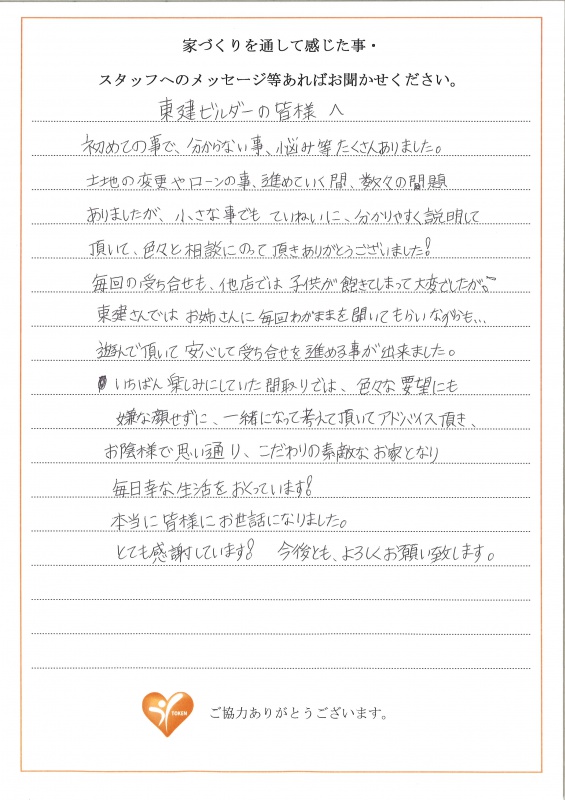 家づくりを通して感じた事・
スタッフへのメッセージ等あればお聞かせください。
東建ビルダーの皆様へ
初めての事で、分からない事、悩み等たくさんありました。
土地の変更やローンの事、進めていく間、数々の問題
ありましたが、小さな事でもていねいに、分かりやすく説明して
頂いて、色々と相談にのって頂きありがとうございました!
毎回の受ち合せも、他店では子供が飽きてしまって大変でしたが。
東建さんではお姉さんに毎回わがままを聞いてもらいながらも...
遊んで頂いて安心して受ち合せを進める事が出来ました。
いちばん楽しみにしていた間取りでは、色々な要望にも
嫌な顔せずに、一緒になって考えて頂いてアドバイス頂き、
お陰様で思い通り、こだわりの素敵なお家となり
毎日幸な生活をおくっています!
本当に皆様にお世話になりました。
とても感謝しています! 今後とも、よろしくお願い致します。
TOKEN
ご協力ありがとうございます。